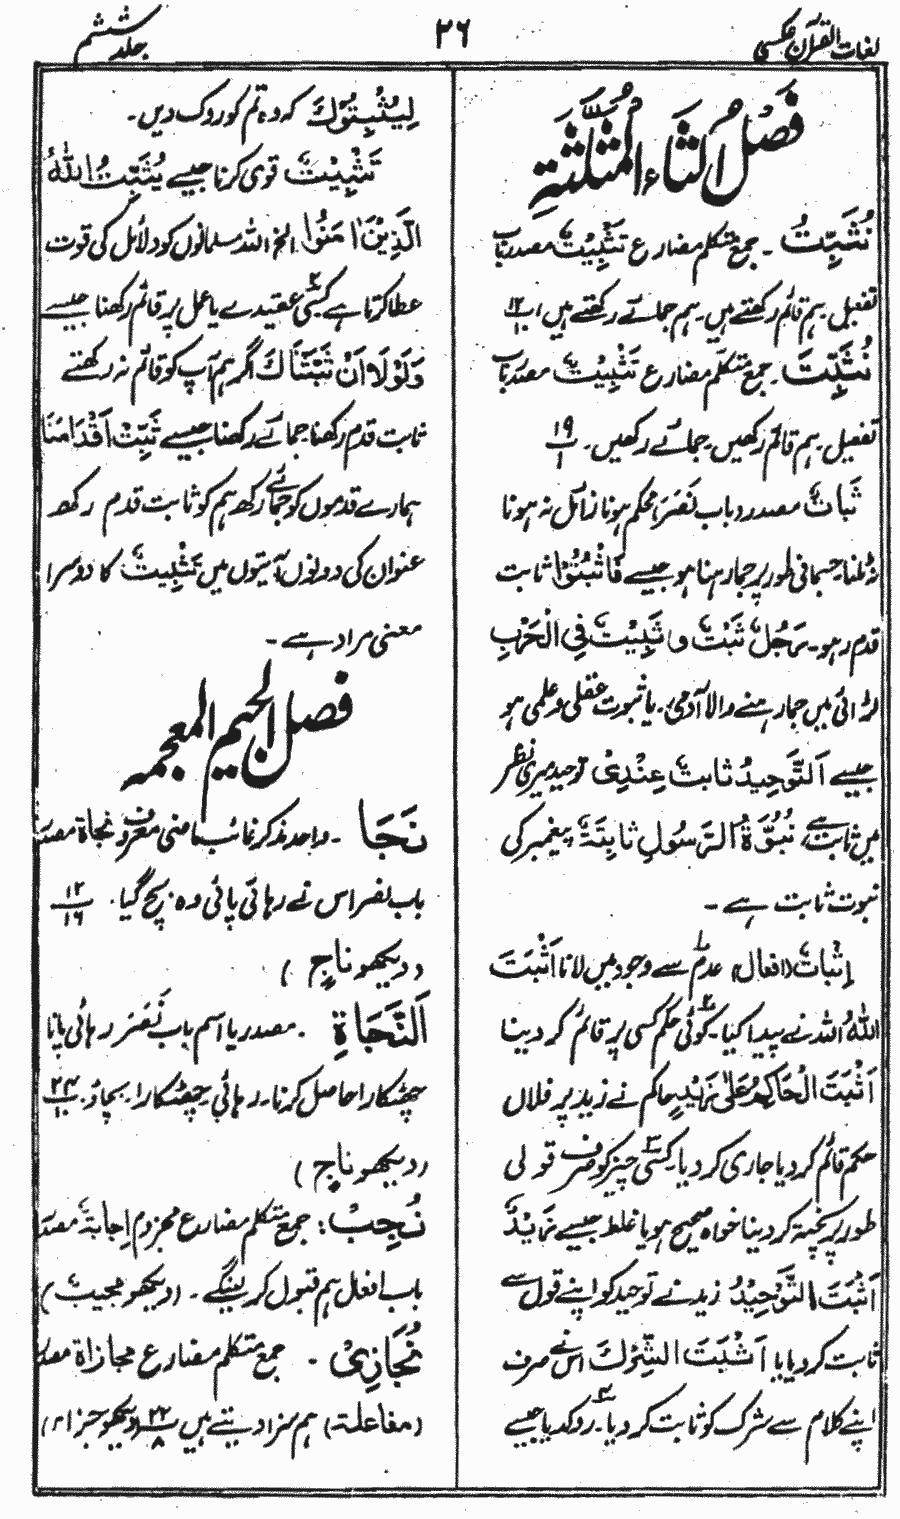 لغات القرآن عکسی
۲۶
جلد ششم
فصل الثاء المثلثة
نُثَبِّتُ ۔ جمع متکلم مضارع تَثْبِيْتٌ مصدر باب
تفعیل ہم قائم رکھتے ہیں۔ ہم جمائے رکھتے ہیں ۱۲
نُثَبِّتَ ۔ جمع متکلم مضارع تَثْبِيْتٌ مصدر باب
تفعیل۔ ہم قائم رکھیں۔ جمائے رکھیں ۔ ۱۹
ثَبَاتٌ مصدر رباب نَصَرَ، محکم ہونا زائل نہ ہونا
نہ ٹلنا۔ جسمانی طور پر جمار ہنا ہو جیسے فَاثْبُتُوْا ثابت
قدم رہو۔ رَجُلٌ ثَبْتٌ و ثَبِيْتٌ فِي الْحَرْبِ
لڑائی میں جمار ہنے والا آدمی۔ یا ثبوت عقلی و علمی ہو
جیسے اَلتَّوْحِيْدُ ثابتٌ عِنْدِيْ توحید میری نظر
میں ثابت ہے، نُبُوَّةُ الرَّسُوْلِ ثَابِتَةٌ پیغمبر کی
نبوت ثابت ہے ۔
اِثْبَاتٌ (افعال) عدم سے وجود میں لانا اَثْبَتَ
اللّٰهُ اللہ نے پیدا کیا ۔ کوئی حکم کسی پر قائم کر دینا
اَثْبَتَ الْحَاكِمُ عَلٰى زَيْدٍ حاکم نے زید پر فلاں
حکم قائم کر دیا جاری کر دیا۔ کسی چیز کو صرف قولی
طور پر پختہ کر دینا خواہ صحیح ہو یا غلط جیسے زَيْدٌ
اَثْبَتَ التَّوْحِيْدَ زید نے توحید کو اپنے قول سے
ثابت کر دیا یا اَثْبَتَ الشِّرْكَ اس نے صرف
اپنے کلام سے شرک کو ثابت کر دیا۔ رد کد یا جیسے
لِيُثْبِتُوْكَ کہ وہ تم کو روک دیں ۔
تَثْبِيْتٌ قوی کرنا جیسے يُثَبِّتُ اللّٰهُ
الَّذِيْنَ اٰمَنُوْا الخ اللہ مسلمانوں کو دلائل کی قوت
عطا کرتا ہے کسی عقیدے یا عمل پر قائم رکھنا جیسے
وَلَوْلَا اَنْ ثَبَّتْنَاكَ اگر ہم آپ کو قائم نہ رکھتے
ثابت قدم رکھنا جمائے رکھنا جیسے ثَبِّتْ اَقْدَامَنَا
ہمارے قدموں کو جمائے رکھ ہم کو ثابت قدم رکھ
عنوان کی دونوں آیتوں میں تَثْبِيْتٌ کا دوسرا
معنی مراد ہے ۔
فصل الجیم المعجمہ
نَجَا ۔ واحد مذکر غائب ماضی معروف نجاة مصدر
باب نصر اس نے رہائی پائی وہ بچ گیا ۔ ۱۲ ۱۶
(دیکھو ناجٍ)
اَلنَّجَاةِ ۔ مصدر یا اسم باب نَصَرَ رہائی پانا
چھٹکارا حاصل کرنا۔ رہائی چھٹکارا۔ بچاؤ۔ ۲۴
(دیکھو ناجٍ)
نُجِبْ : جمع متکلم مضارع مجزوم اِجَابَةٌ مصدر
باب افعل ہم قبول کرینگے ۔ (دیکھو مجیبٌ)
نُجَازِيْ ۔ جمع متکلم مضارع مجازاة مصدر
(مفاعلة) ہم سزا دیتے ہیں ۲۲ ۸ (دیکھو جزاء)